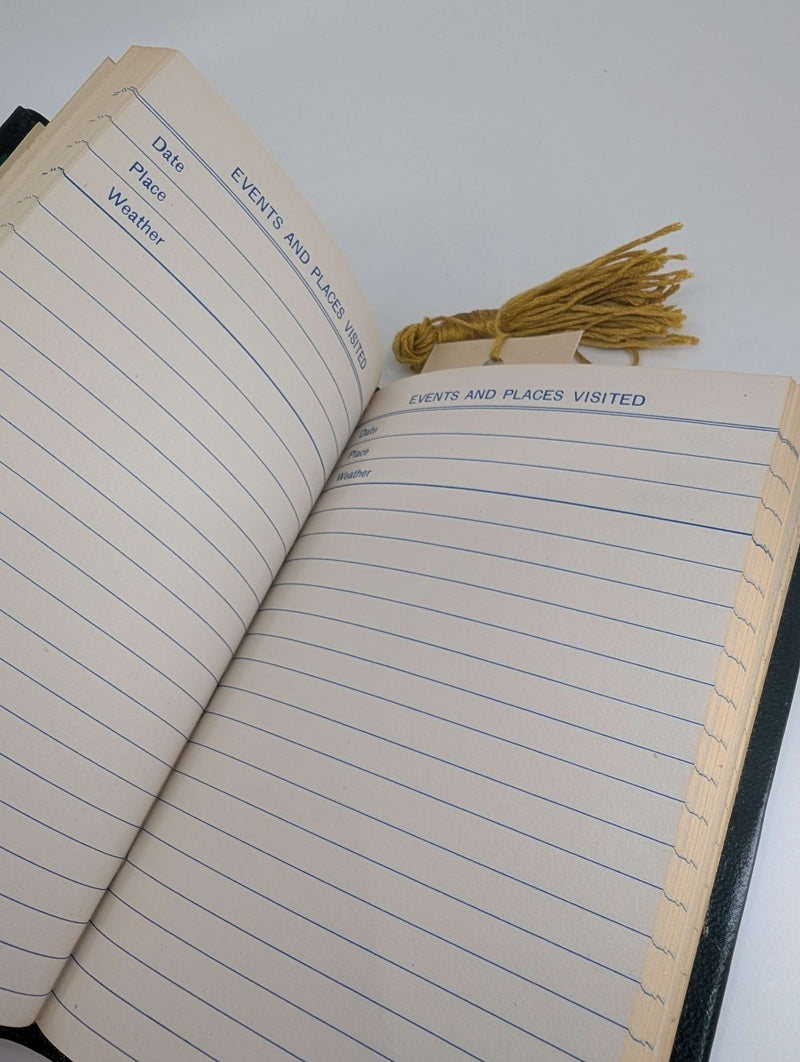 EVENTS AND PLACES VISITED
Date
Place
Weather
EVENTS AND PLACES VISITED
Date
Place
Weather